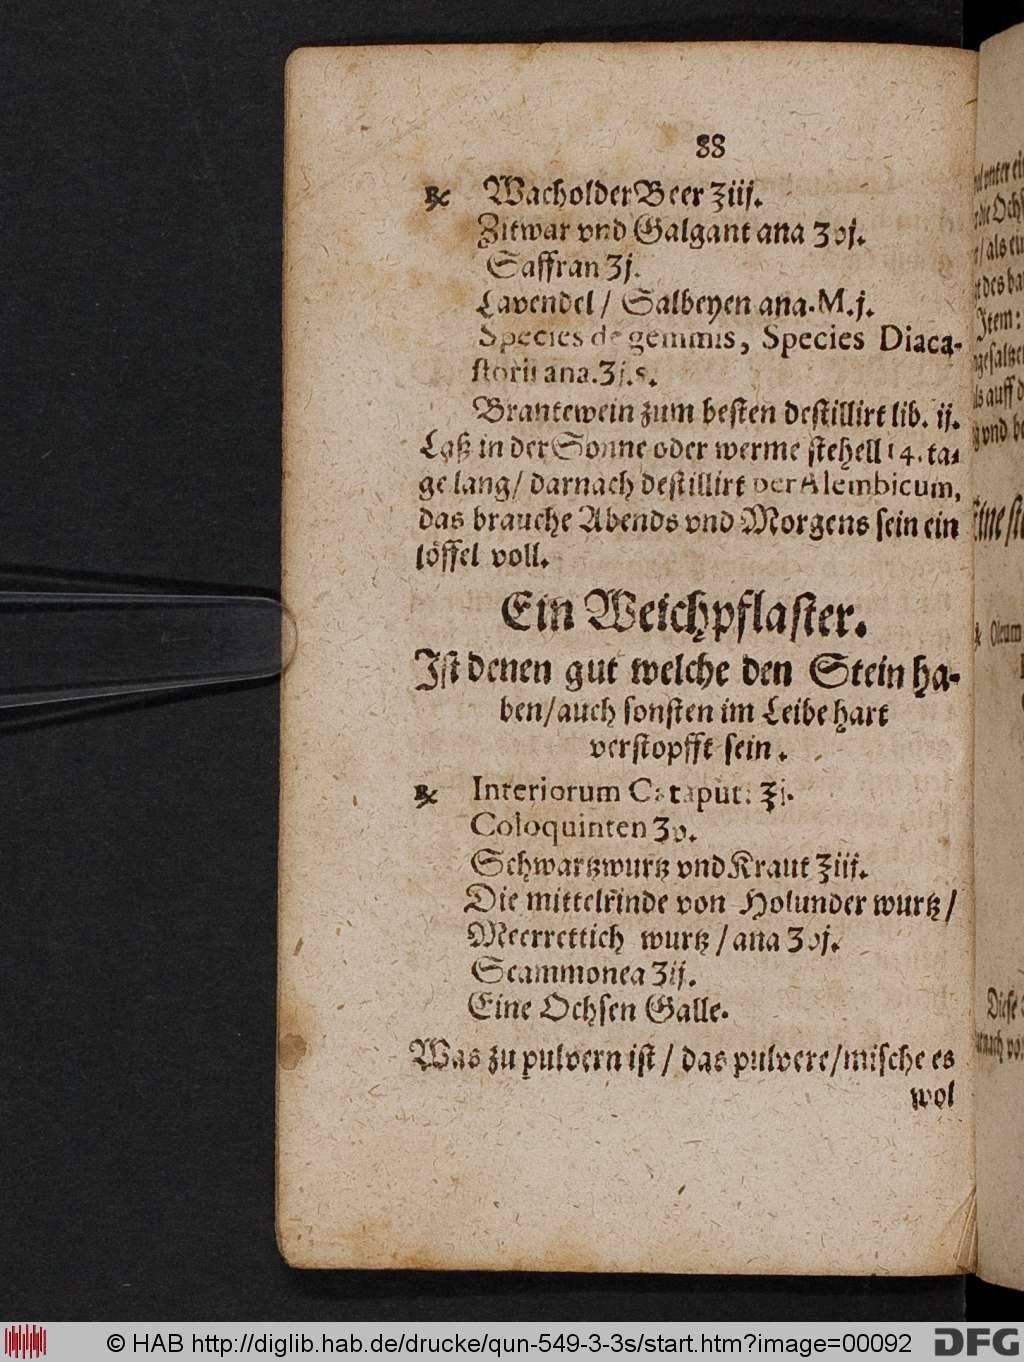 88
℞ Wacholder Beer ʒiij.
Zitwar vnd Galgant ana ʒvj.
Saffran ʒj.
Lavendel / Salbeyen ana. M. j.
Species de gemmis, Species Diaca-
storii ana. ʒj. s.
Brantewein zum besten destillirt lib. ij.
Laß in der Sonne oder werme stehen 14. ta-
ge lang / darnach destillirt per Alembicum,
das brauche Abends vnd Morgens sein ein
löffel voll.
Ein Weichpflaster.
Ist denen gut welche den Stein ha-
ben / auch sonsten im Leibe hart
verstopfft sein.
℞ Interiorum Cataput: ʒj.
Coloquinten ʒv.
Schwartzwurtz vnd Kraut ʒiij.
Die mittelrinde von Holunder wurtz /
Meerrettich wurtz / ana ʒvj.
Scammonea ʒij.
Eine Ochsen Galle.
Was zu pulvern ist / das pulvere / mische es
wol
© HAB http://diglib.hab.de/drucke/qun-549-3-3s/start.htm?image=00092
DFG